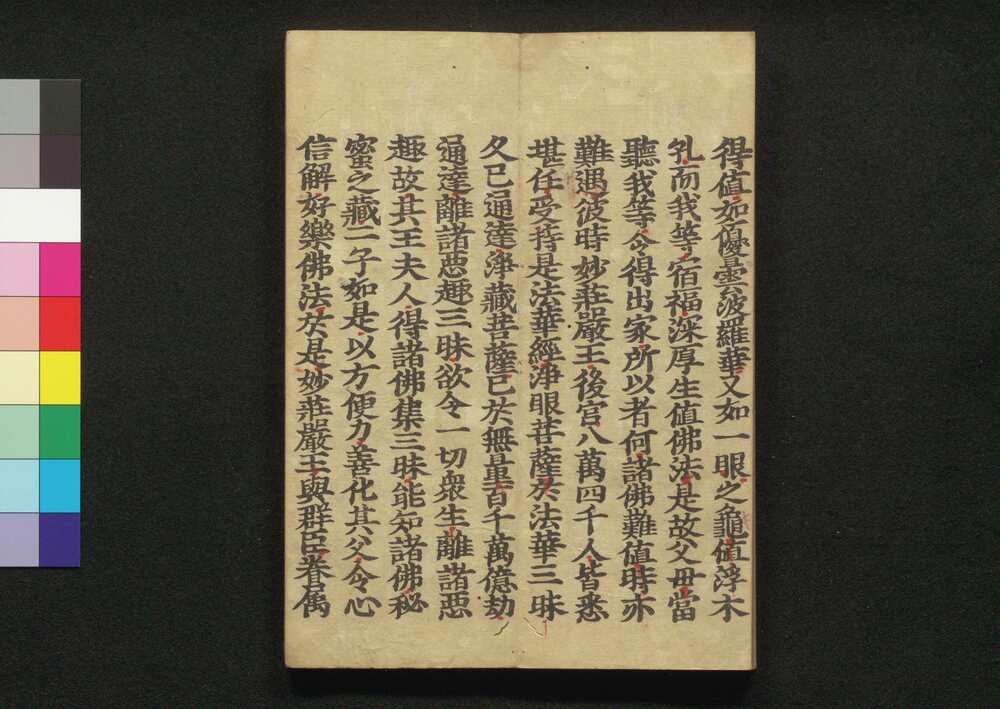 得值如優曇波羅華又如一眼之龜值浮木
孔而我等宿福深厚生值佛法是故父母當
聽我等令得出家所以者何諸佛難值時亦
難遇彼時妙莊嚴王後宮八萬四千人皆悉
堪任受持是法華經淨眼菩薩於法華三昧
久已通達淨藏菩薩已於無量百千萬億劫
通達離諸惡趣三昧欲令一切衆生離諸惡
趣故其王夫人得諸佛集三昧能知諸佛秘
蜜之藏二子如是以方便力善化其父令心
信解好樂佛法於是妙莊嚴王與群臣眷属